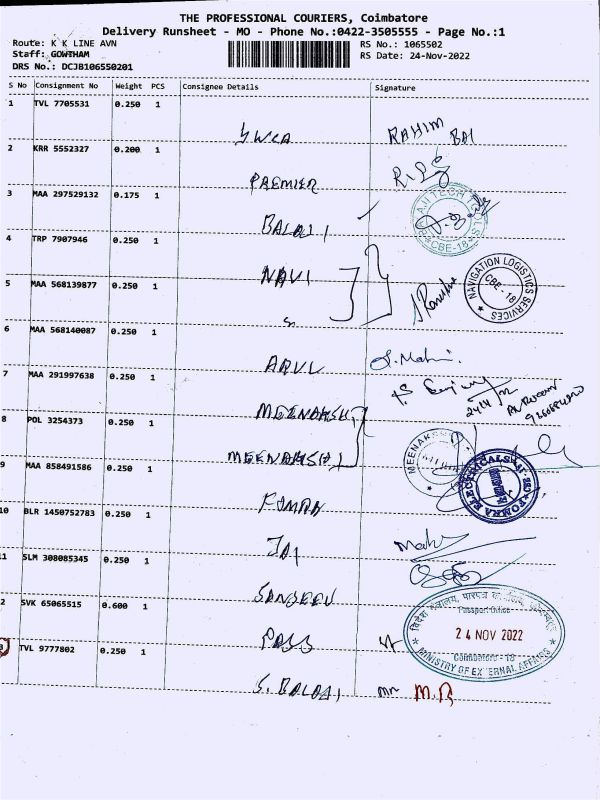 THE PROFESSIONAL COURIERS, Coimbatore
Delivery Runsheet - MO - Phone No.:0422-3505555 - Page No.:1
Route: K K LINE AVN
RS No.: 1065502
Staff: GOWTHAM
RS Date: 24-Nov-2022
DRS No.: DCJB106550201
S No Consignment No Weight PCS Consignee Details Signature
1 TVL 7705531 0.250 1
YWCA RAHIM BAI
2 KRR 5552327 0.200 1
PREMIER
3 MAA 297529132 0.175 1
BALAJI
TECH TOOLS
CBE-18
4 TRP 7907946 0.250 1
NAVI
NAVIGATION LOGISTICS SERVICES
CBE - 18
5 MAA 568139877 0.250 1
6 MAA 568140087 0.250 1
ARUL
7 MAA 291997638 0.250 1
24/11/22
MEENAKSHI
8 POL 3254373 0.250 1
MEENAKSHI
MEENAKSHI
9 MAA 858491586 0.250 1
FOMRA
FOMRA ELECTRICALS
10 BLR 1450752783 0.250 1
JAI
11 SLM 308085345 0.250 1
SANJEEV
2 SVK 65065515 0.600 1
PASS
Passport Office
24 NOV 2022
Coimbatore - 18
MINISTRY OF EXTERNAL AFFAIRS
TVL 9777802 0.250 1
S. BALAJI M.R